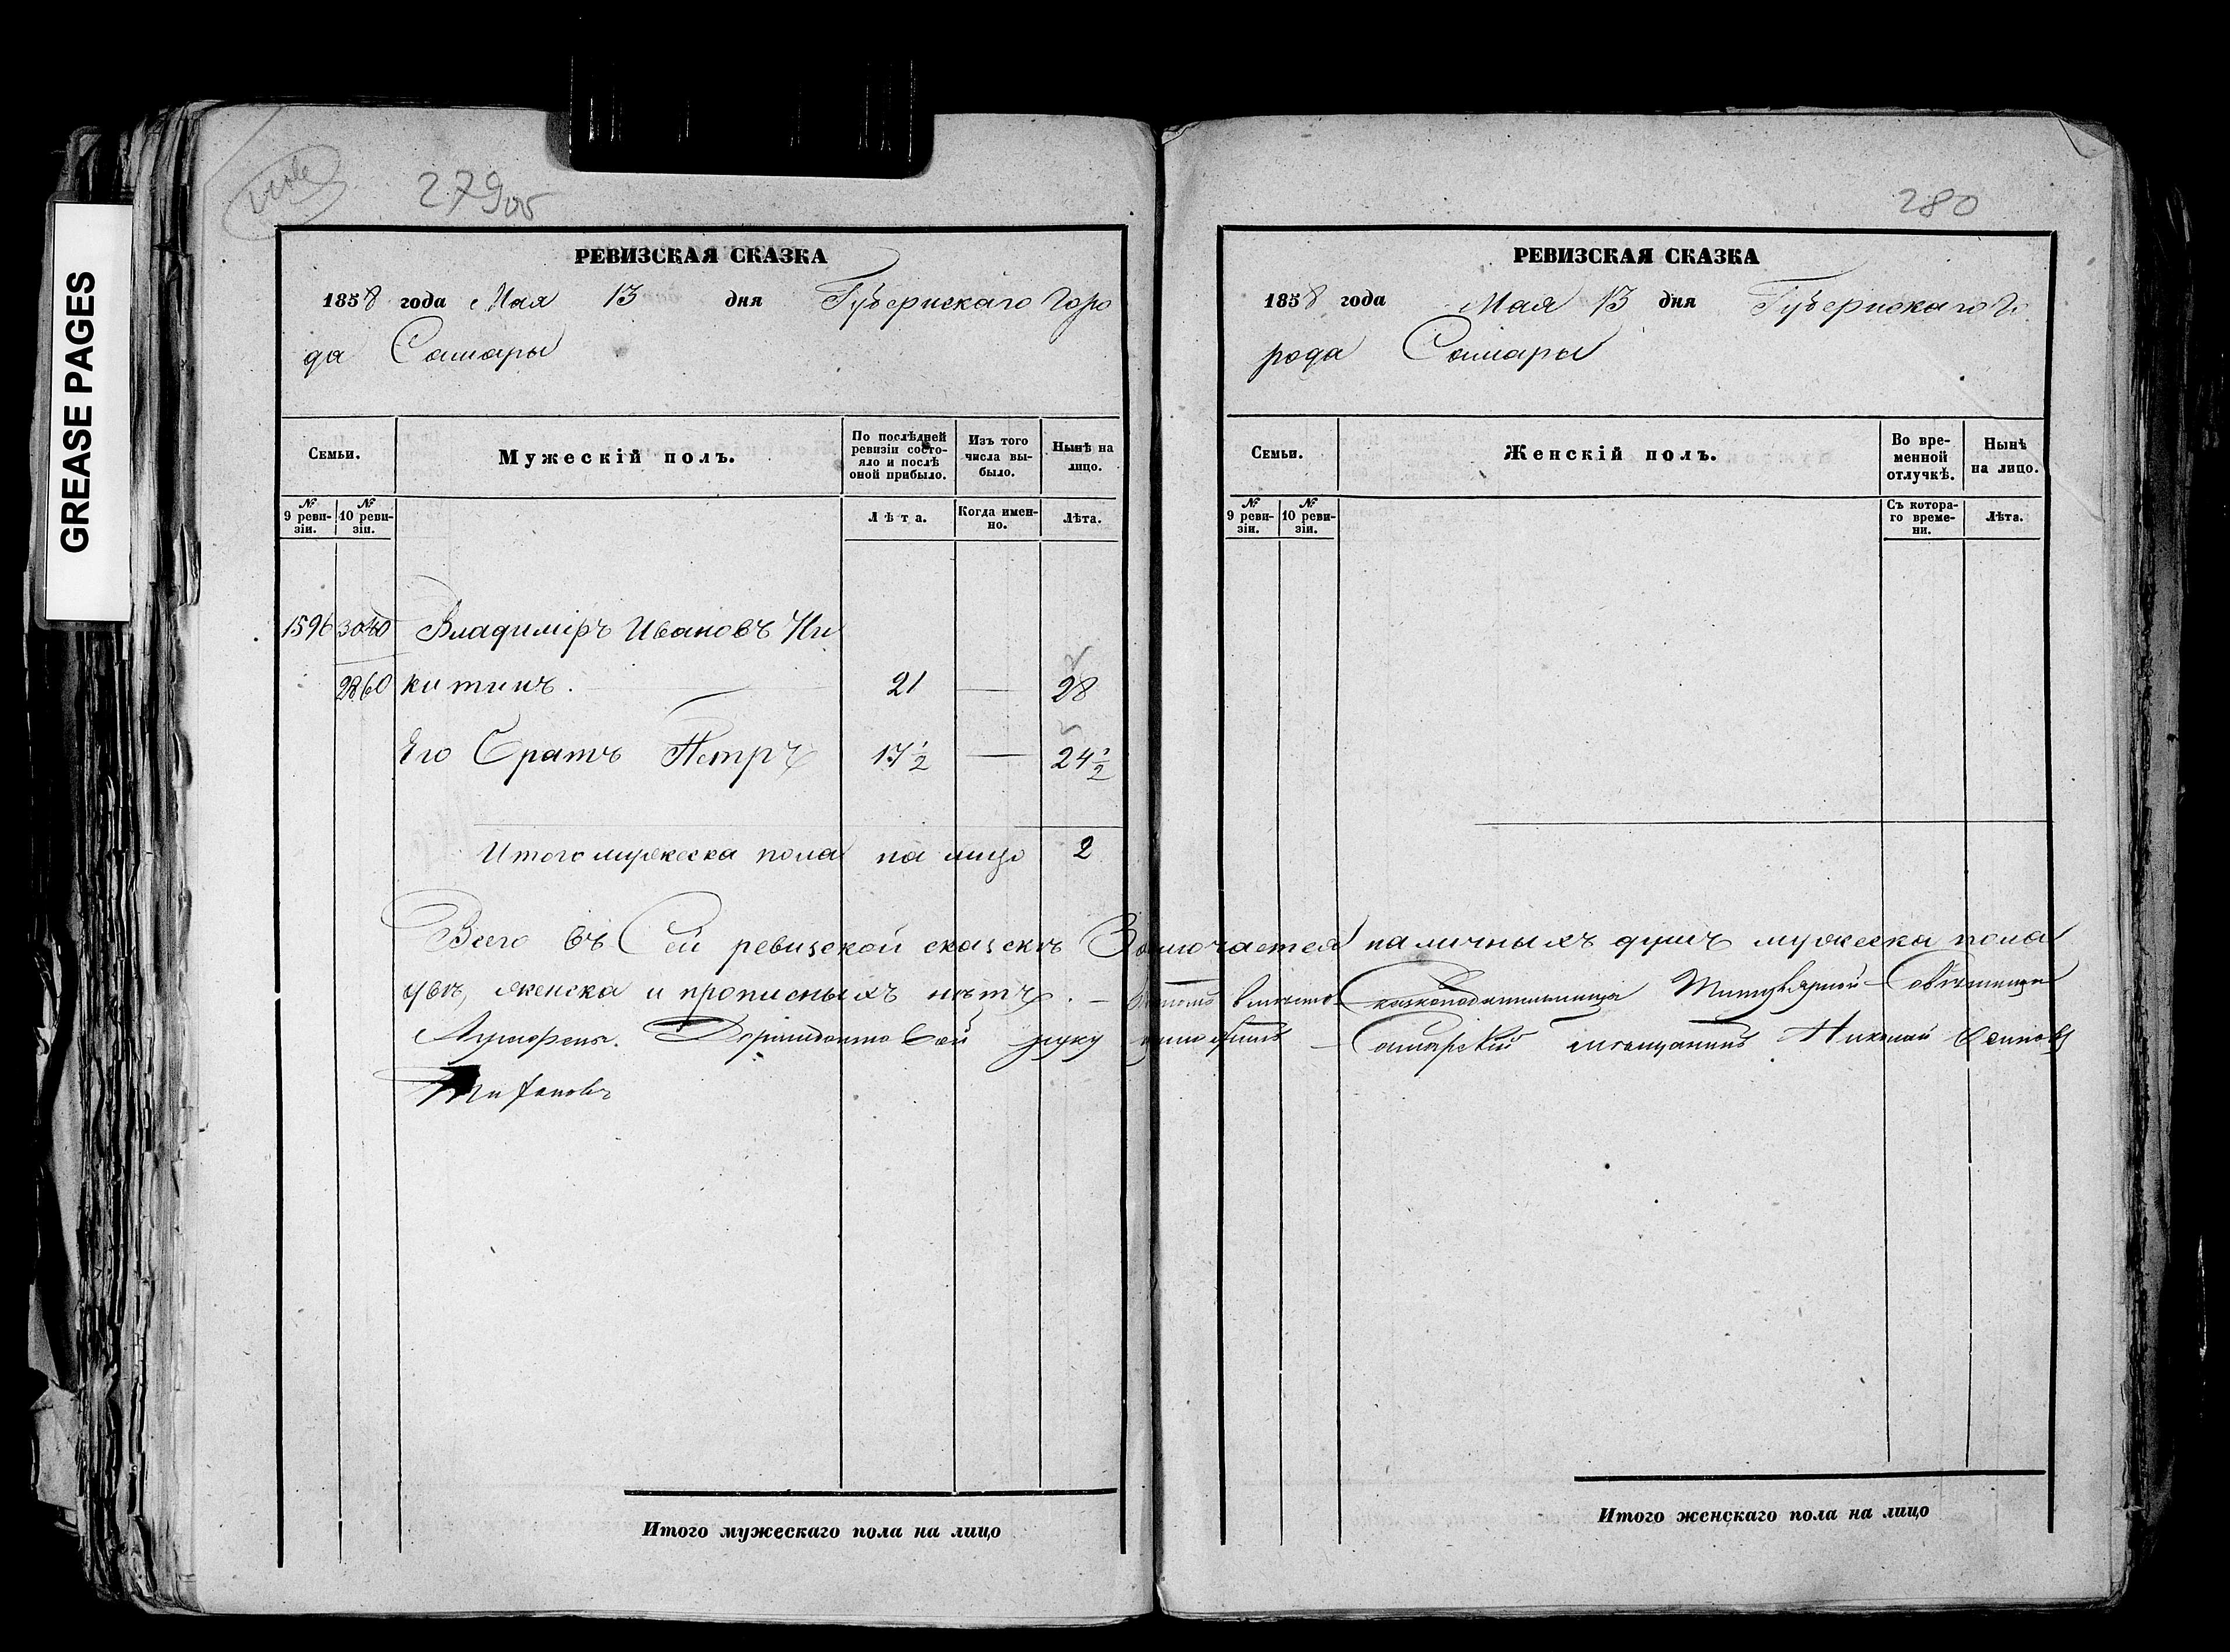 GREASE PAGES
279об
РЕВИЗСКАЯ СКАЗКА
1858 года Мая 13 дня Губернскаго Горо
да Самары
Семьи.
Мужескій полъ.
По послѣдней ревизіи состо-
яло и послѣ оной прибыло.
Изъ того числа вы-
было.
Нынѣ на лицо.
№ 9 реви-
зіи.
№ 10 реви-
зіи.
Лѣта.
Когда имен-
но.
Лѣта.
1596 3040 Владиміръ Ивановъ Ни
2860 китинъ. 21 — 28
Его Братъ Петръ 17 1/2 — 24 1/2
Итого мужеска пола на лицо 2
Всего въ Сей ревизской сказкѣ Заключается наличныхъ душъ мужеска пола
двѣ, женска и прописныхъ нѣтъ. —
руку приложилъ Самарскій мѣщанинъ Николай Осиповъ
Итого мужескаго пола на лицо
280
РЕВИЗСКАЯ СКАЗКА
1858 года Мая 13 дня Губернскаго Го
рода Самары
Семьи.
Женскій полъ.
Во вре-
менной отлучкѣ.
Нынѣ на лицо.
№ 9 реви-
зіи.
№ 10 реви-
зіи.
Съ котора-
го време-
ни.
Лѣта.
Итого женскаго пола на лицо